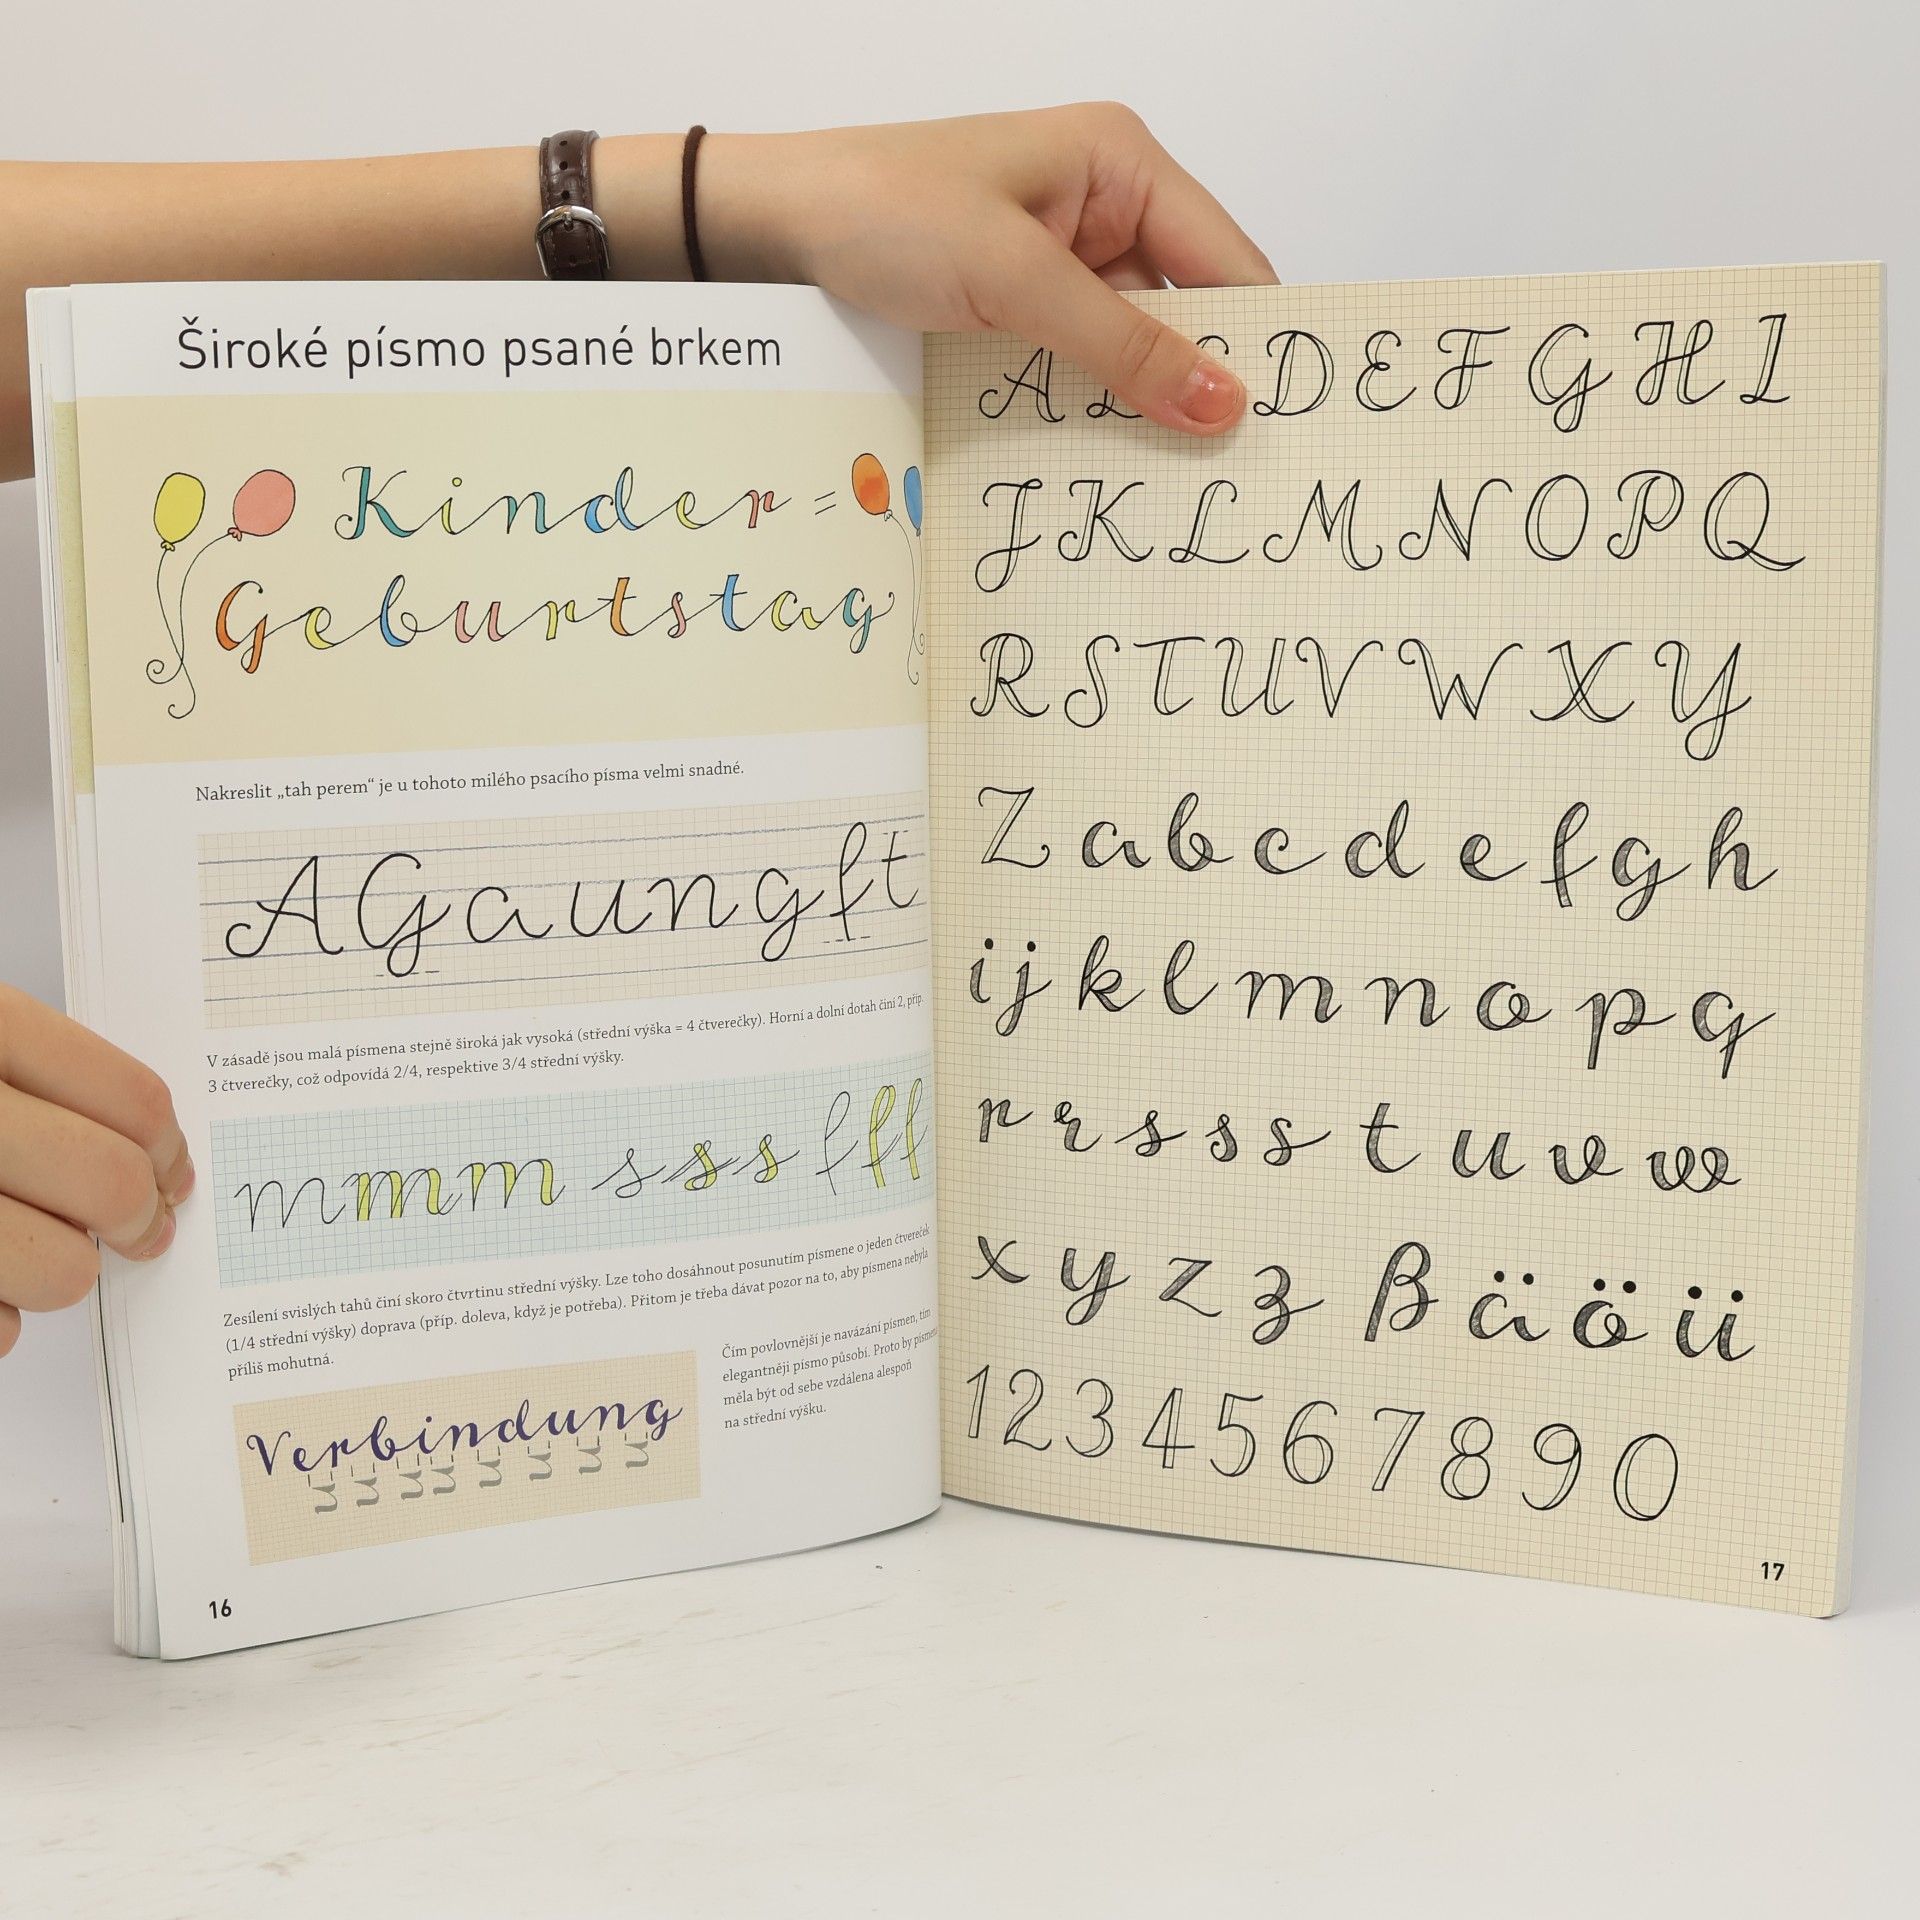 Široké písmo psané brkem
Kinder=
Geburtstag
Nakreslit „tah perem“ je u tohoto milého psacího písma velmi snadné.
A G a u n g f t
V zásadě jsou malá písmena stejně široká jak vysoká (střední výška = 4 čtverečky). Horní a dolní dotah činí 2, příp.
3 čtverečky, což odpovídá 2/4, respektive 3/4 střední výšky.
m m m s s s f f f
Zesílení svislých tahů činí skoro čtvrtinu střední výšky. Lze toho dosáhnout posunutím písmene o jeden čtvereček
(1/4 střední výšky) doprava (příp. doleva, když je potřeba). Přitom je třeba dávat pozor na to, aby písmena nebyla
příliš mohutná.
Verbindung
u u u u u u u u
Čím povlovnější je navázání písmen, tím
elegantněji písmo působí. Proto by písmena
měla být od sebe vzdálena alespoň
na střední výšku.
16
A D E F G H I
J K L M N O P Q
R S T U V W X Y
Z a b c d e f g h
i j k l m n o p q
r r s s s t u v w
x y z z ß ä ö ü
1 2 3 4 5 6 7 8 9 0
17